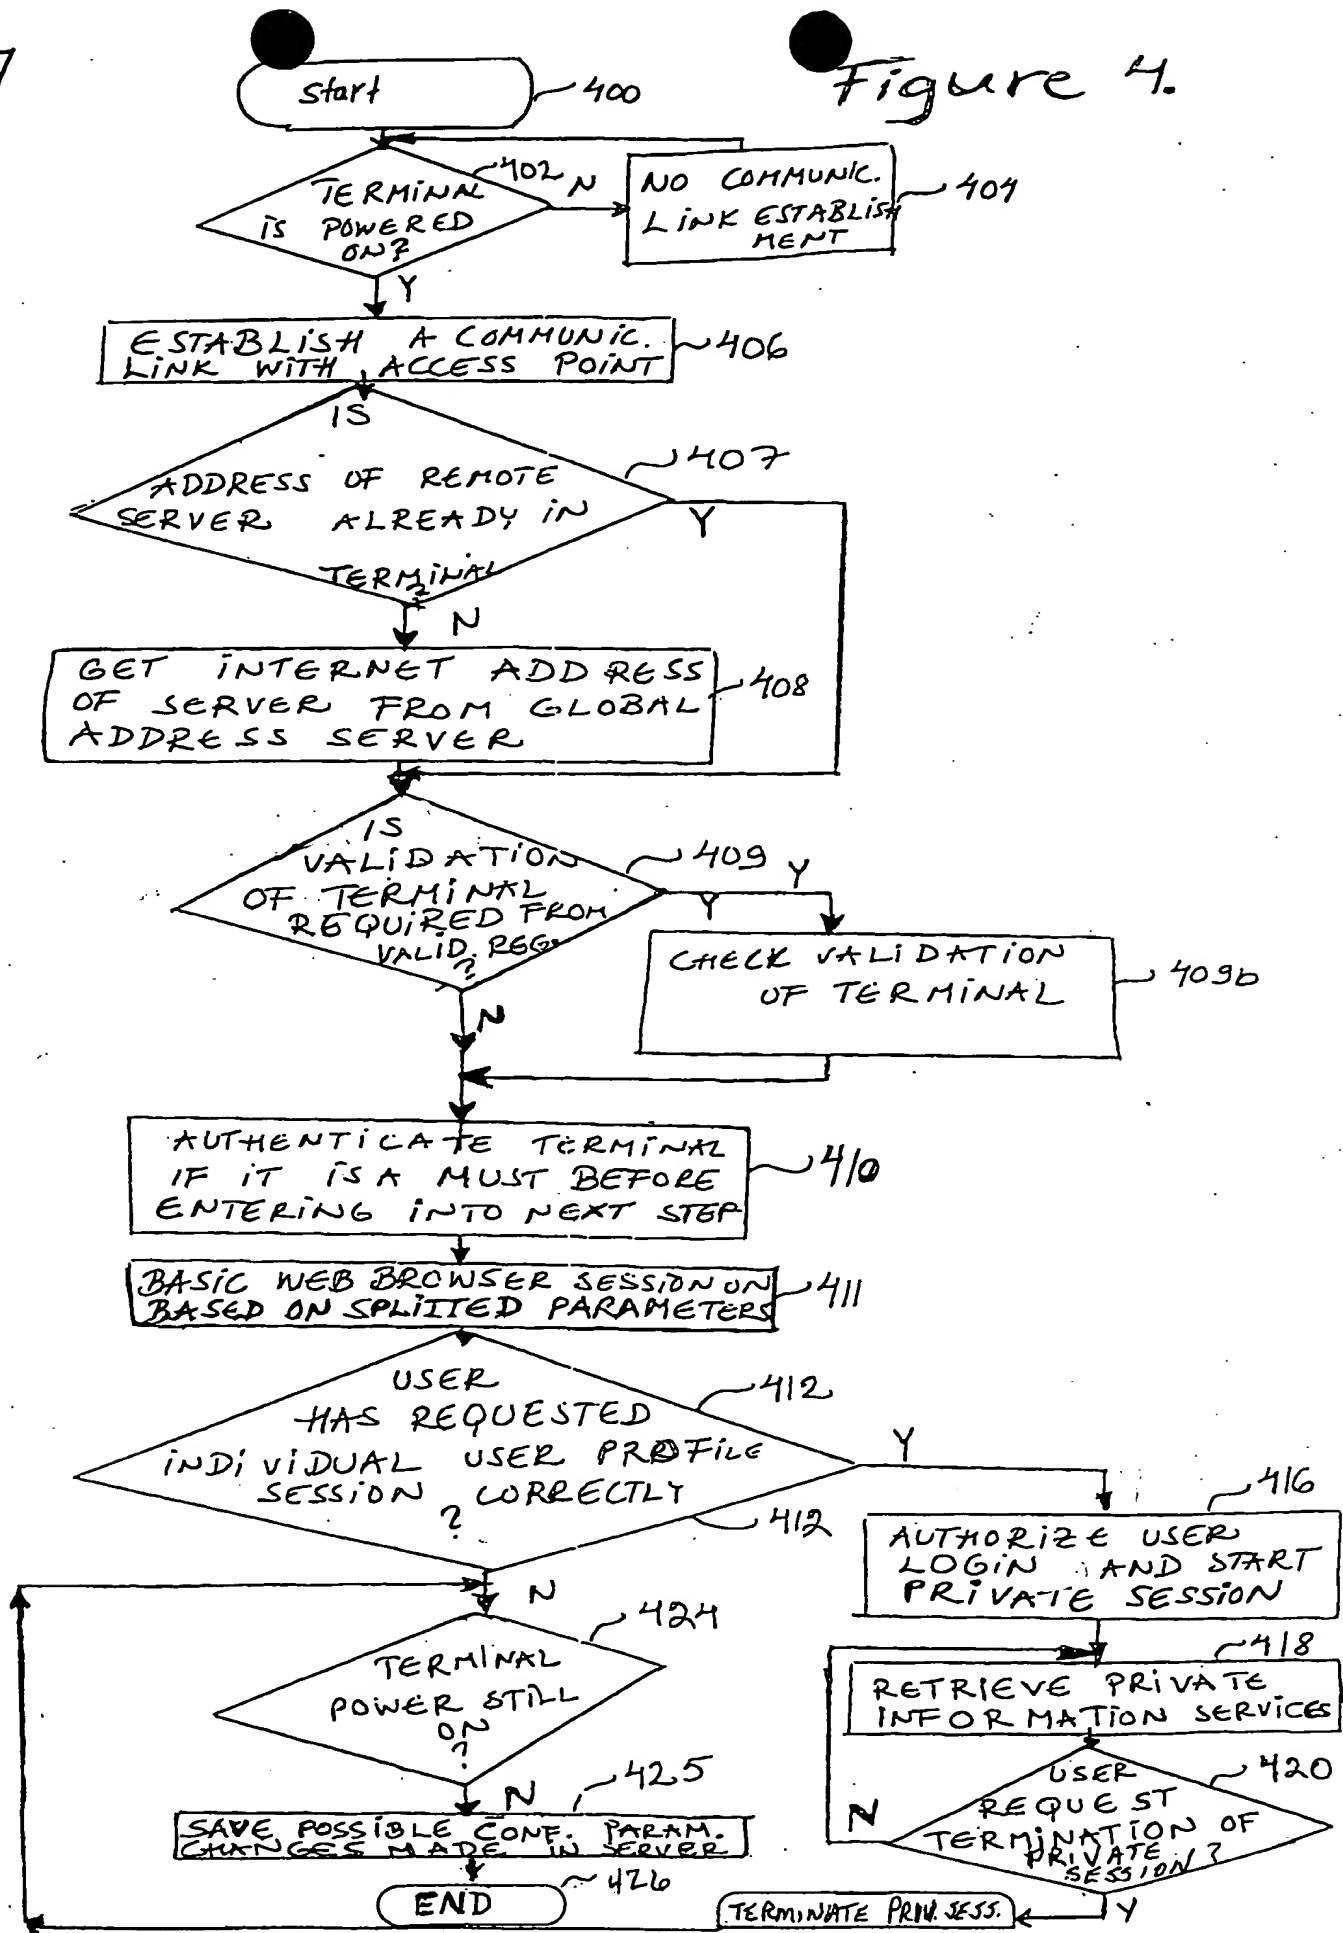 7
Figure 4.
start
400
402
TERMINAL
IS POWERED
ON?
N
NO COMMUNIC.
LINK ESTABLISH
MENT
404
Y
ESTABLISH A COMMUNIC.
LINK WITH ACCESS POINT
406
IS
ADDRESS OF REMOTE
SERVER ALREADY IN
TERMINAL
?
407
Y
N
GET INTERNET ADDRESS
OF SERVER FROM GLOBAL
ADDRESS SERVER
408
IS
VALIDATION
OF TERMINAL
REQUIRED FROM
VALID. REG.
?
409
Y
Y
CHECK VALIDATION
OF TERMINAL
409b
N
AUTHENTICATE TERMINAL
IF IT IS A MUST BEFORE
ENTERING INTO NEXT STEP
410
BASIC WEB BROWSER SESSION ON
BASED ON SPLITTED PARAMETERS
411
USER
HAS REQUESTED
INDIVIDUAL USER PROFILE
SESSION CORRECTLY
?
412
412
Y
416
AUTHORIZE USER
LOGIN AND START
PRIVATE SESSION
N
424
TERMINAL
POWER STILL
ON
?
418
RETRIEVE PRIVATE
INFORMATION SERVICES
420
USER
REQUEST
TERMINATION OF
PRIVATE
SESSION?
N
Y
N
425
SAVE POSSIBLE CONF. PARAM.
CHANGES MADE IN SERVER
426
END
TERMINATE PRIV. SESS.